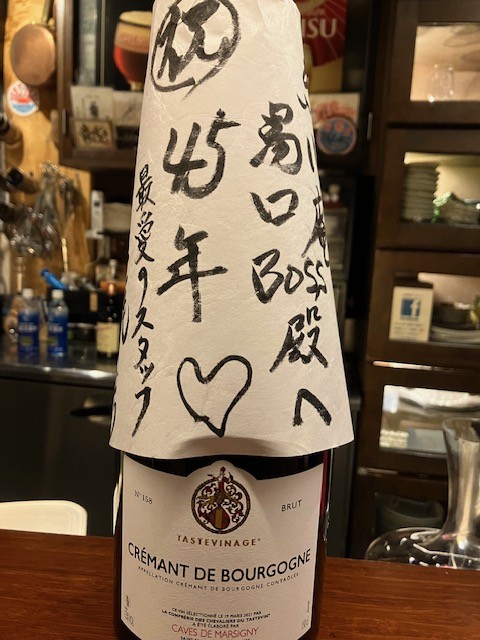 庵
口BOSS殿へ
祝
45年♡
最愛のスタッフ
N° 158
BRUT
TASTEVINAGE®
CRÉMANT DE BOURGOGNE
APPELLATION CRÉMANT DE BOURGOGNE CONTRÔLÉE
CE VIN SÉLECTIONNÉ LE 19 MARS 2021 PAR
LA CONFRÉRIE DES CHEVALIERS DU TASTEVIN
A ÉTÉ ÉLABORÉ PAR
CAVES DE MARSIGNY